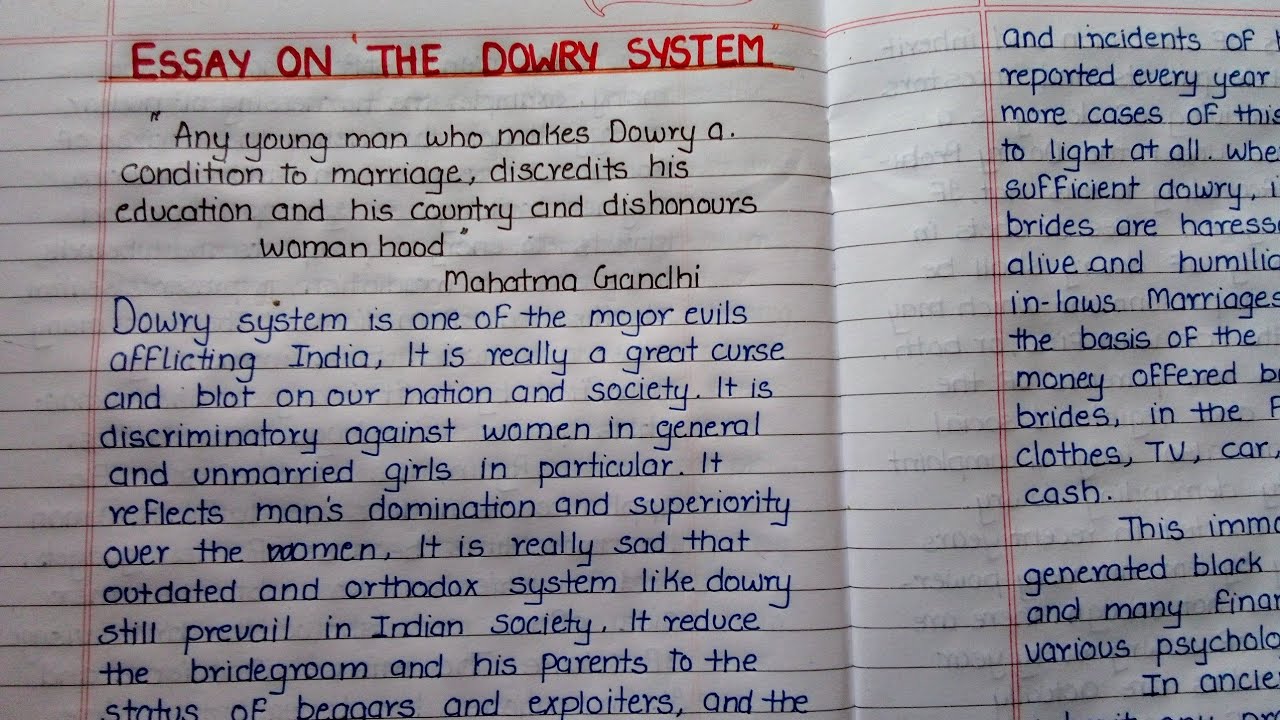 ESSAY ON "THE DOWRY SYSTEM"
"Any young man who makes Dowry a.
condition to marriage, discredits his
education and his country and dishonours
woman hood"
Mahatma Gandhi
Dowry system is one of the mojor evils
afflicting India, It is really a great curse
and blot on our nation and society. It is
discriminatory against women in general
and unmarried girls in particular. It
reflects man's domination and superiority
over the women, It is really sad that
outdated and orthodox system like dowry
still prevail in Indian society. It reduce
the bridegroom and his parents to the
status of beggars and exploiters, and the
and incidents of
reported every year
more cases of this
to light at all.
sufficient dowry,
brides are
alive and
in-laws. Marriages
the basis of the
money offered
brides, in the
clothes, TV, car,
cash.
This
generated black
and many
various
In